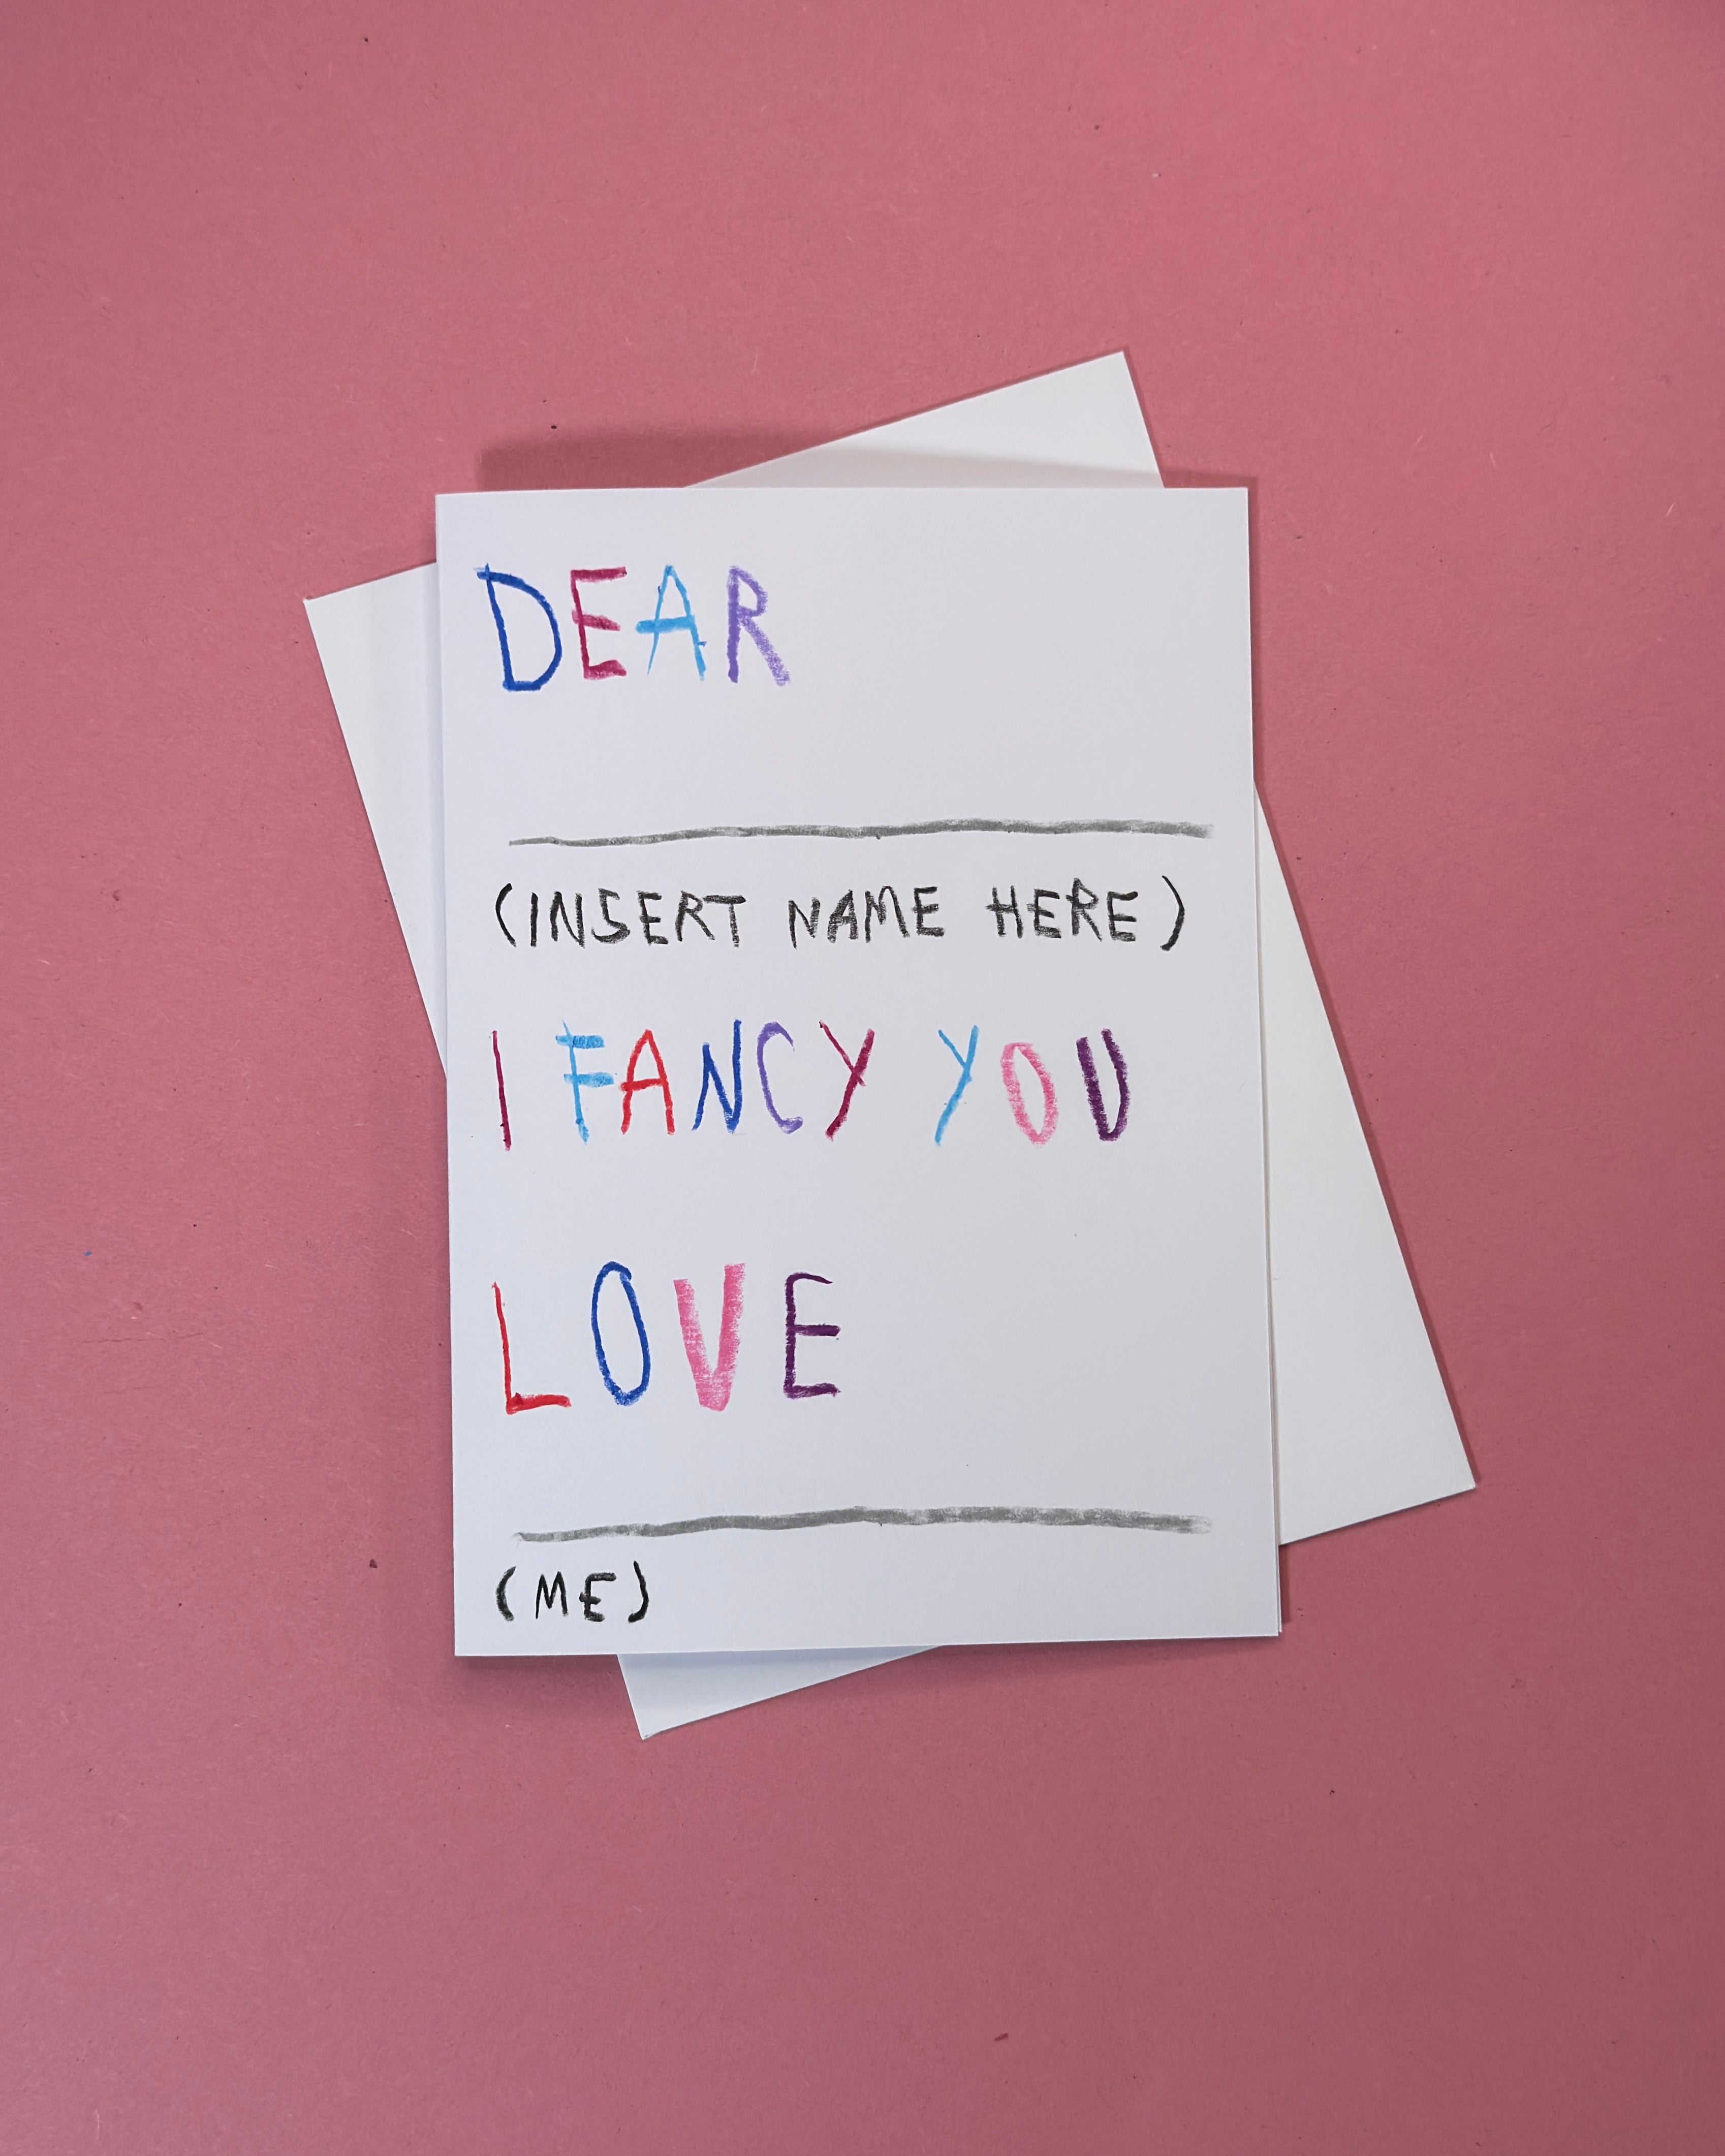 DEAR
(INSERT NAME HERE)
I FANCY YOU
LOVE
(ME)